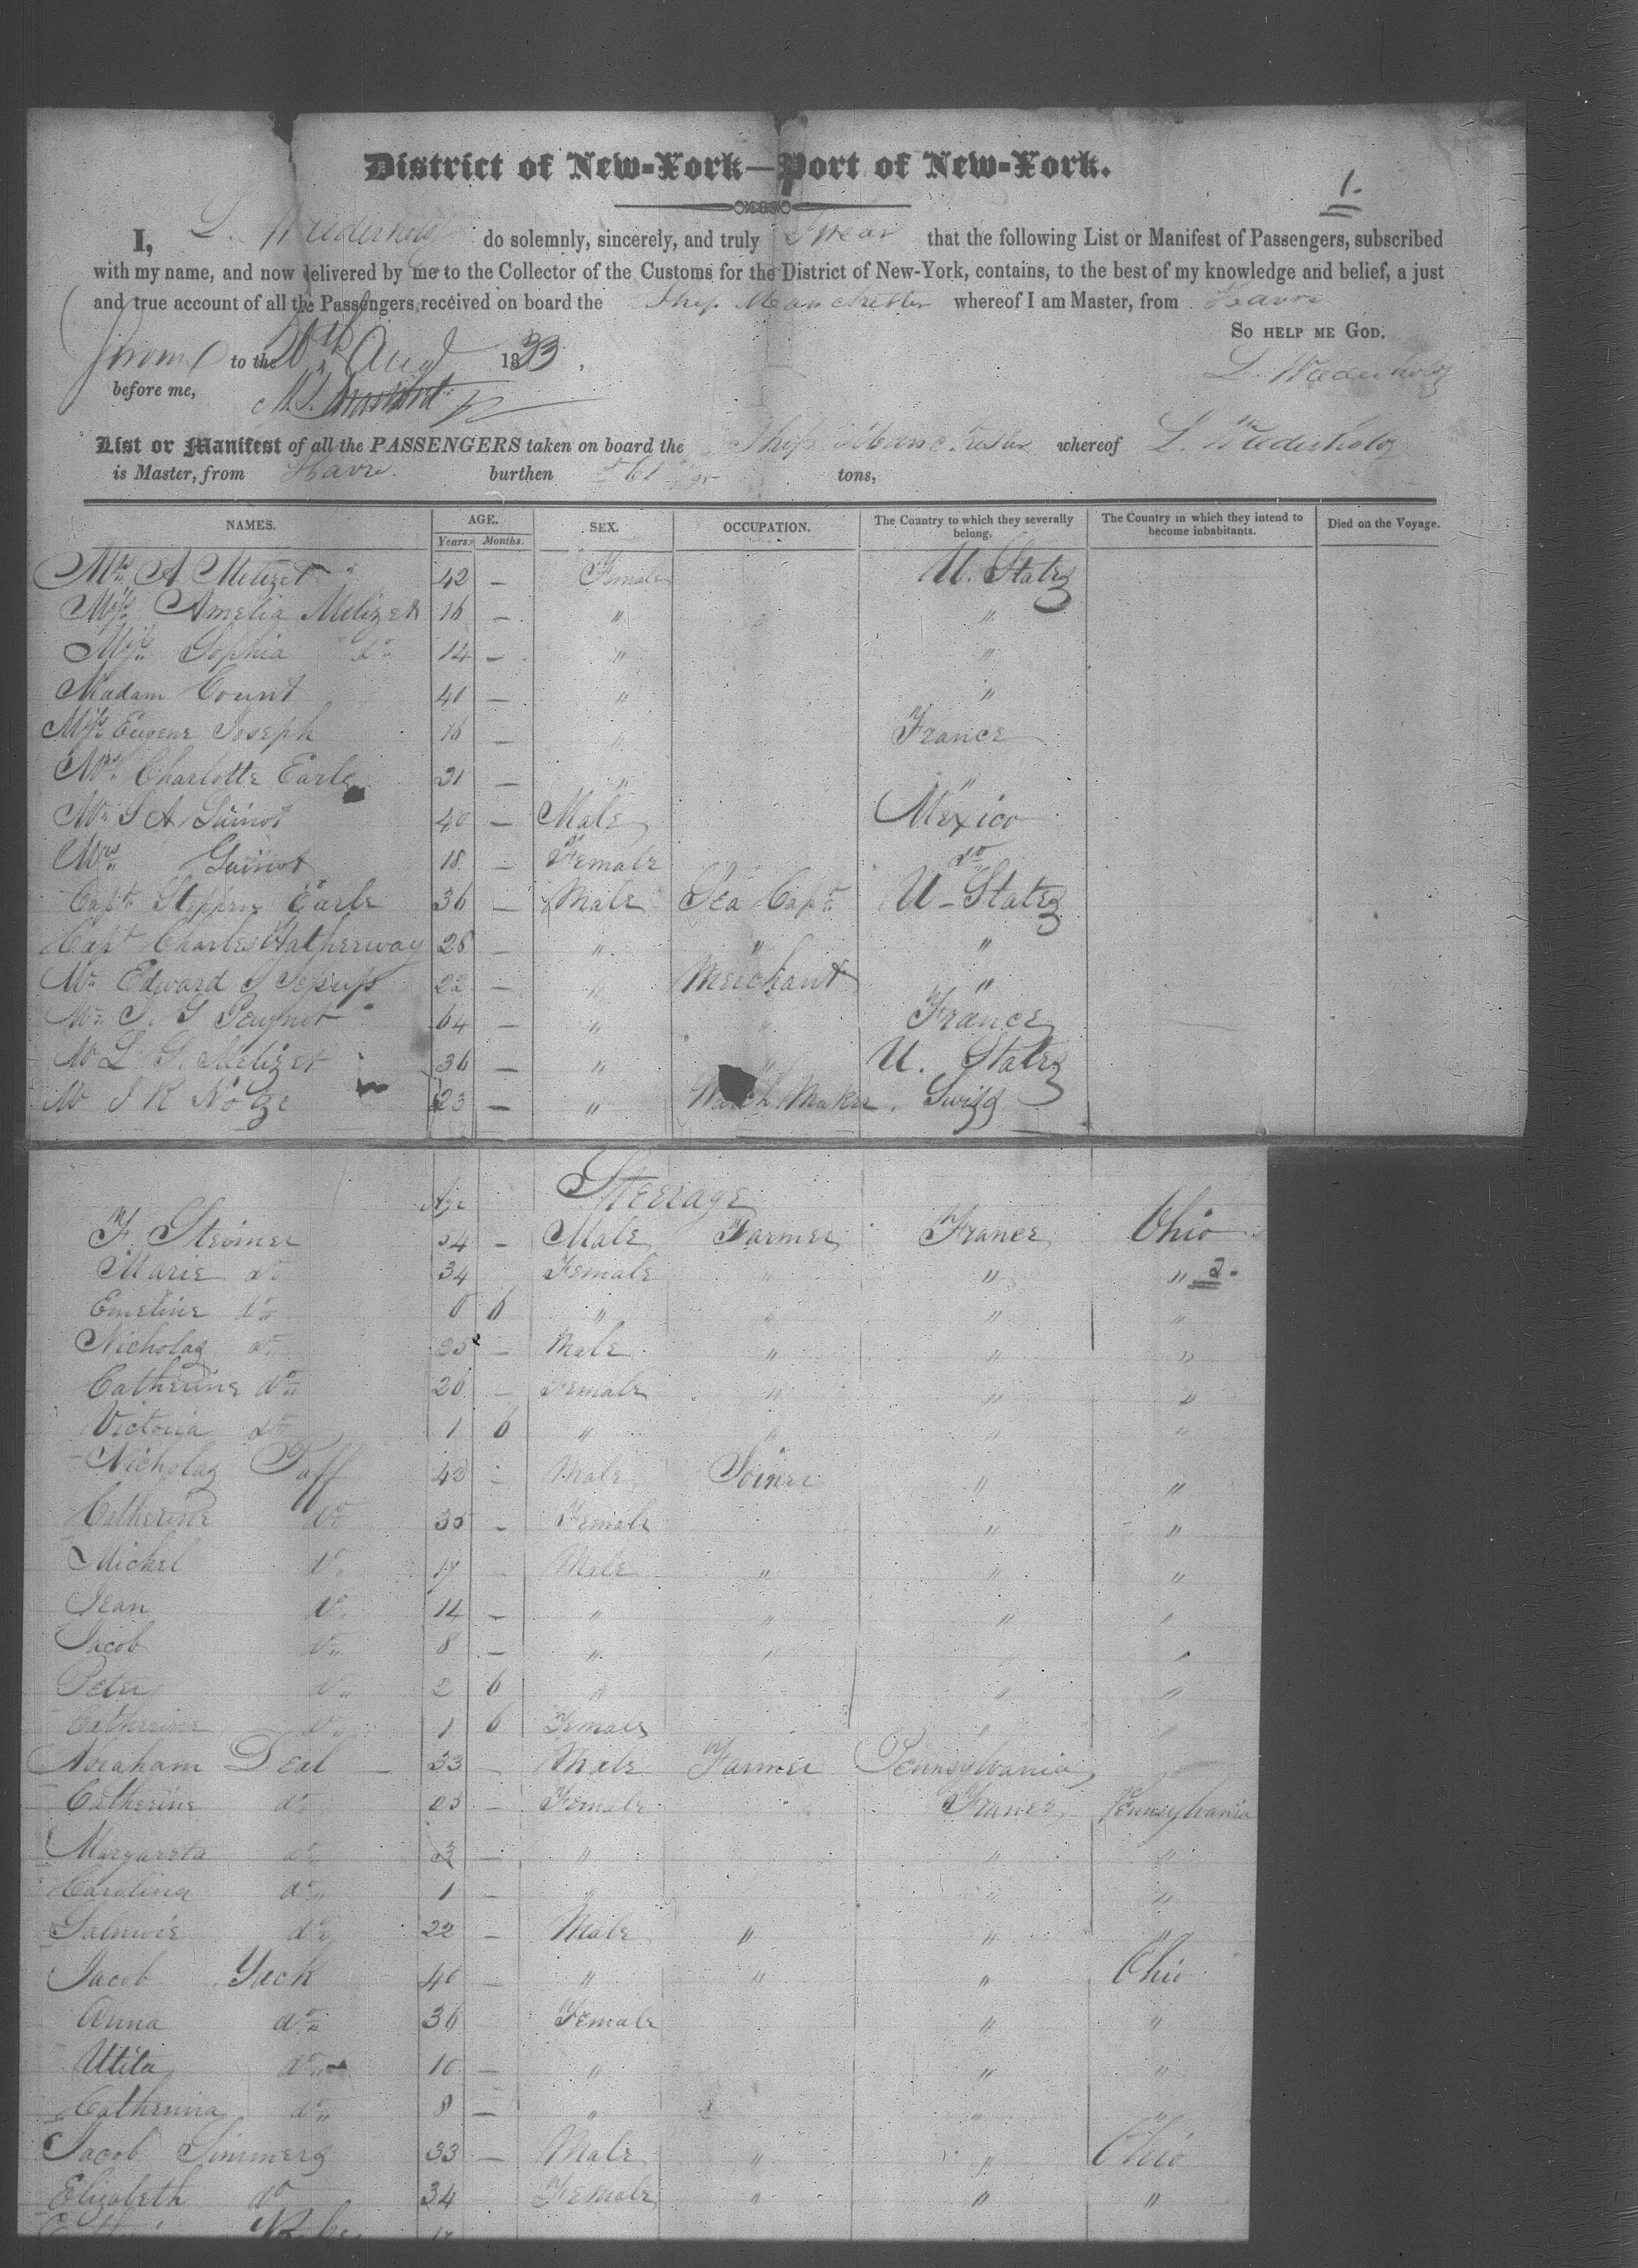 District of New-York—Port of New-York.
1.
I, L. Wiederholz do solemnly, sincerely, and truly Swear that the following List or Manifest of Passengers, subscribed
with my name, and now delivered by me to the Collector of the Customs for the District of New-York, contains, to the best of my knowledge and belief, a just
and true account of all the Passengers received on board the Ship Manchester whereof I am Master, from Havre
So help me God.
Sworn to the 20th Aug 1833.
L. Wiederholz
before me,
List or Manifest of all the PASSENGERS taken on board the Ship Manchester whereof L. Wiederholz
is Master, from Havre. burthen tons,
NAMES. AGE. SEX. OCCUPATION. The Country to which they severally belong. The Country in which they intend to become inhabitants. Died on the Voyage.
Years. Months.
Mrs A Melizet 42 — Female U. States
Miss Amelia Melizet 16 — " "
Miss Sophia do 14 — " "
Madam Count 40 — " "
Miss Eugene Joseph 16 — " France
Mrs Charlotte Earle 31 — " "
Mr S A Guinot 40 — Male Mexico
Mrs Guinot 18 — Female do
Capt Stephen Earle 36 — Male Sea Capt U-States
Capt Charles Hatherway 28 — " " "
Mr Edward S 22 — " Merchant "
Mr S. G Peugnot 64 — " " France
Mr L G. Melizet 36 — " " U. States
Mr J R Notze 23 — " Watch Maker. Swiss
Age Steerage
F. Steimer 34 — Male Farmer France Ohio
Marie do 34 Female " " " 2.
Emeline do 0 6 " " " "
Nicholas do 25 — Male " " "
Catherine do 26 — Female " " "
Victoria do 1 6 " " " "
Nicholas Paff 42 — Male Joiner " "
Catherine do 35 — Female " "
Michel do 17 — Male " " "
Jean do 14 — " " " "
Jacob do 8 — " " " "
Peter do 2 6 " " "
Catherine do 1 6 Female " "
Abraham Deal 33 — Male Farmer Pennsylvania
Catherine do 25 — Female France Pennsylvania
Margareta do 3 — " " "
Carolina do 1 — " " "
do 22 — Male " " "
Jacob Yack 40 — " " " Ohio
Anna do 36 Female " "
Utila do 10 — " " "
Catherina do 8 — " " "
Jacob Simmers 33 — Male " " Ohio
Elizabeth do 34 Female " " "